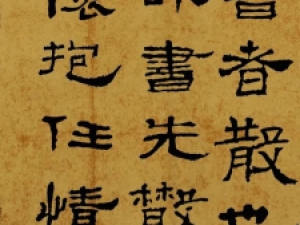 書者散也
書先散
懷抱任情